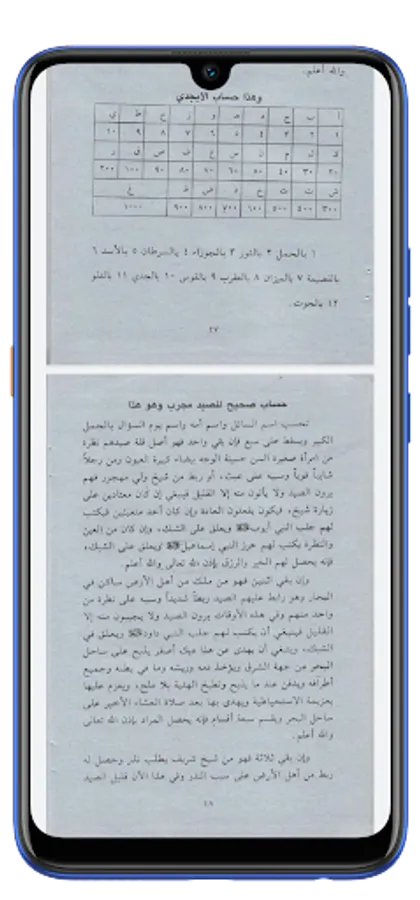 والله أعلم.
وهذا حساب الأبجدي
ا ب ج د هـ و ز ح ط ي
١ ٢ ٣ ٤ ٥ ٦ ٧ ٨ ٩ ١٠
ك ل م ن س ع ف ص ق ر
٢٠ ٣٠ ٤٠ ٥٠ ٦٠ ٧٠ ٨٠ ٩٠ ١٠٠ ٢٠٠
ش ت ث خ ذ ض ظ غ
٣٠٠ ٤٠٠ ٥٠٠ ٦٠٠ ٧٠٠ ٨٠٠ ٩٠٠ ١٠٠٠
١ بالحمل ٢ بالثور ٣ بالجوزاء ٤ بالسرطان ٥ بالأسد ٦
٧ بالميزان ٨ ٩ بالقوس ١٠ بالجدي ١١ بالدلو
١٢ بالحوت.
٤٧
حساب صحيح للصيد مجرب وهو هذا
تحسب اسم السائل واسم أمه واسم يوم السؤال بالجمل
الكبير ويسقط على سبع فإن بقي واحد فهو أصل قلة صيدهم نظرة
من امرأة صغيرة السن حسينة الوجه بيضاء كبيرة العيون ومن رجلاً
شايباً قوياً وسببه على أو ربط من شيخ ولي مهجور فهم
يرون الصيد ولا يأتون منه إلا القليل فينبغي إن كان معتادين على
زيارة شيخ، فيكون يفعلون العادة وإن كان أخذ متعبتين فيكتب
لهم جلب النبي أيوب ويعلق على الشبك، وإن كان من العين
والنظرة يكتب لهم حرز النبي إسماعيل ويعلق على الشبك،
فإنه يحصل لهم الخير والرزق بإذن الله تعالى والله أعلم.
وإن بقي اثنين فهو من ملك من أهل الأرض ساكن في
البحار وهو رابط عليهم الصيد ربطاً شديداً وسببه على نظرة من
واحد منهم وفي هذه الأوقات يرون الصيد ولا يجيبون منه إلا
القليل فينبغي أن يكتب لهم جلب النبي داود ويعلق في
الشبك، وينبغي أن يهدى عن هذا ديك أصفر يذبح على ساحل
البحر من جهة الشرق ويؤخذ دمه وريشه وما في بطنه وجميع
أطرافه ويدفن عند ما يذبح وتطبخ الهدية بلا ملح، ويعزم عليها
بعزيمة الاستحياطية ويهدى بها بعد صلاة العشاء الأخير على
ساحل البحر ويقسم سبعة أقسام فإنه يحصل المراد بإذن الله تعالى
والله أعلم.
وإن بقي ثلاثة فهو من شيخ شريف يطلب نذر وحصل له
ربط من أهل الأرض على سبب النذر وفي هذا الآن قليل الصيد
٤٨